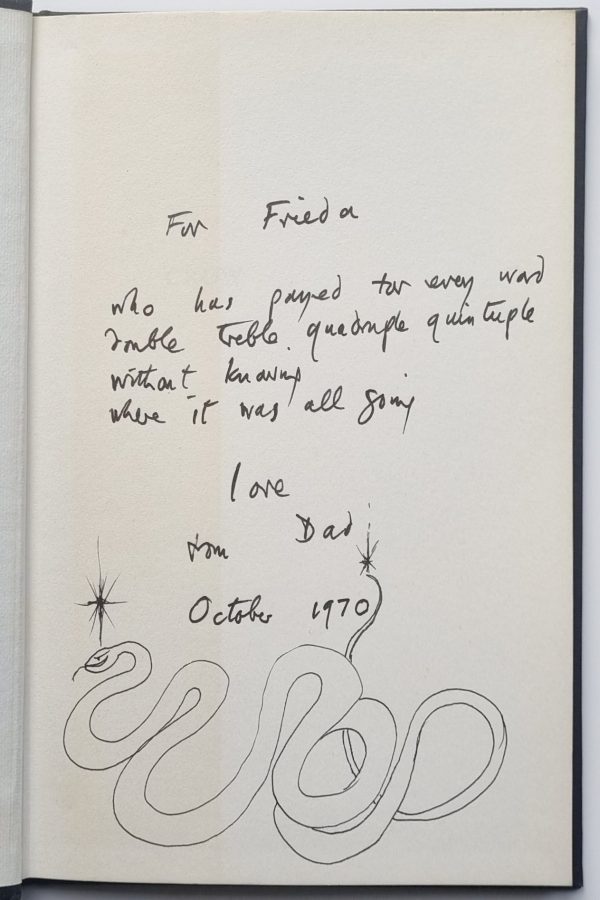 For Frieda
who has payed for every word
double treble quadruple quintuple
without knowing
where it was all going
love
from Dad
October 1970